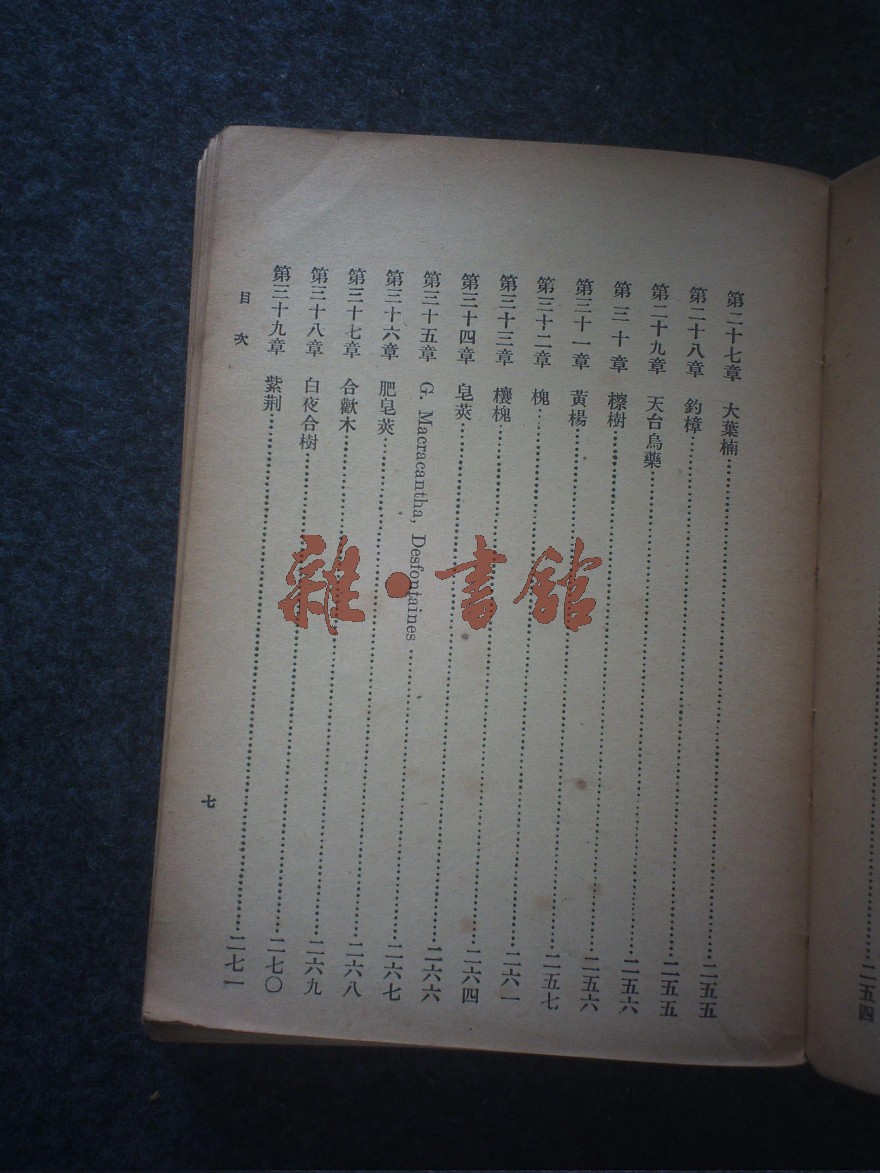 第二十七章　大葉楠……二五五
第二十八章　釣樟……二五五
第二十九章　天台烏藥……二五六
第三十章　檫樹……二五六
第三十一章　黃楊……二五七
第三十二章　槐……二六一
第三十三章　櫰槐……二六四
第三十四章　皂莢……二六六
第三十五章　G. Macracantha, Desfontaines……二六七
第三十六章　肥皂莢……二六八
第三十七章　合歡木……二六九
第三十八章　白夜合樹……二七〇
第三十九章　紫荆……二七一
目次
七
二五四
雜・書館